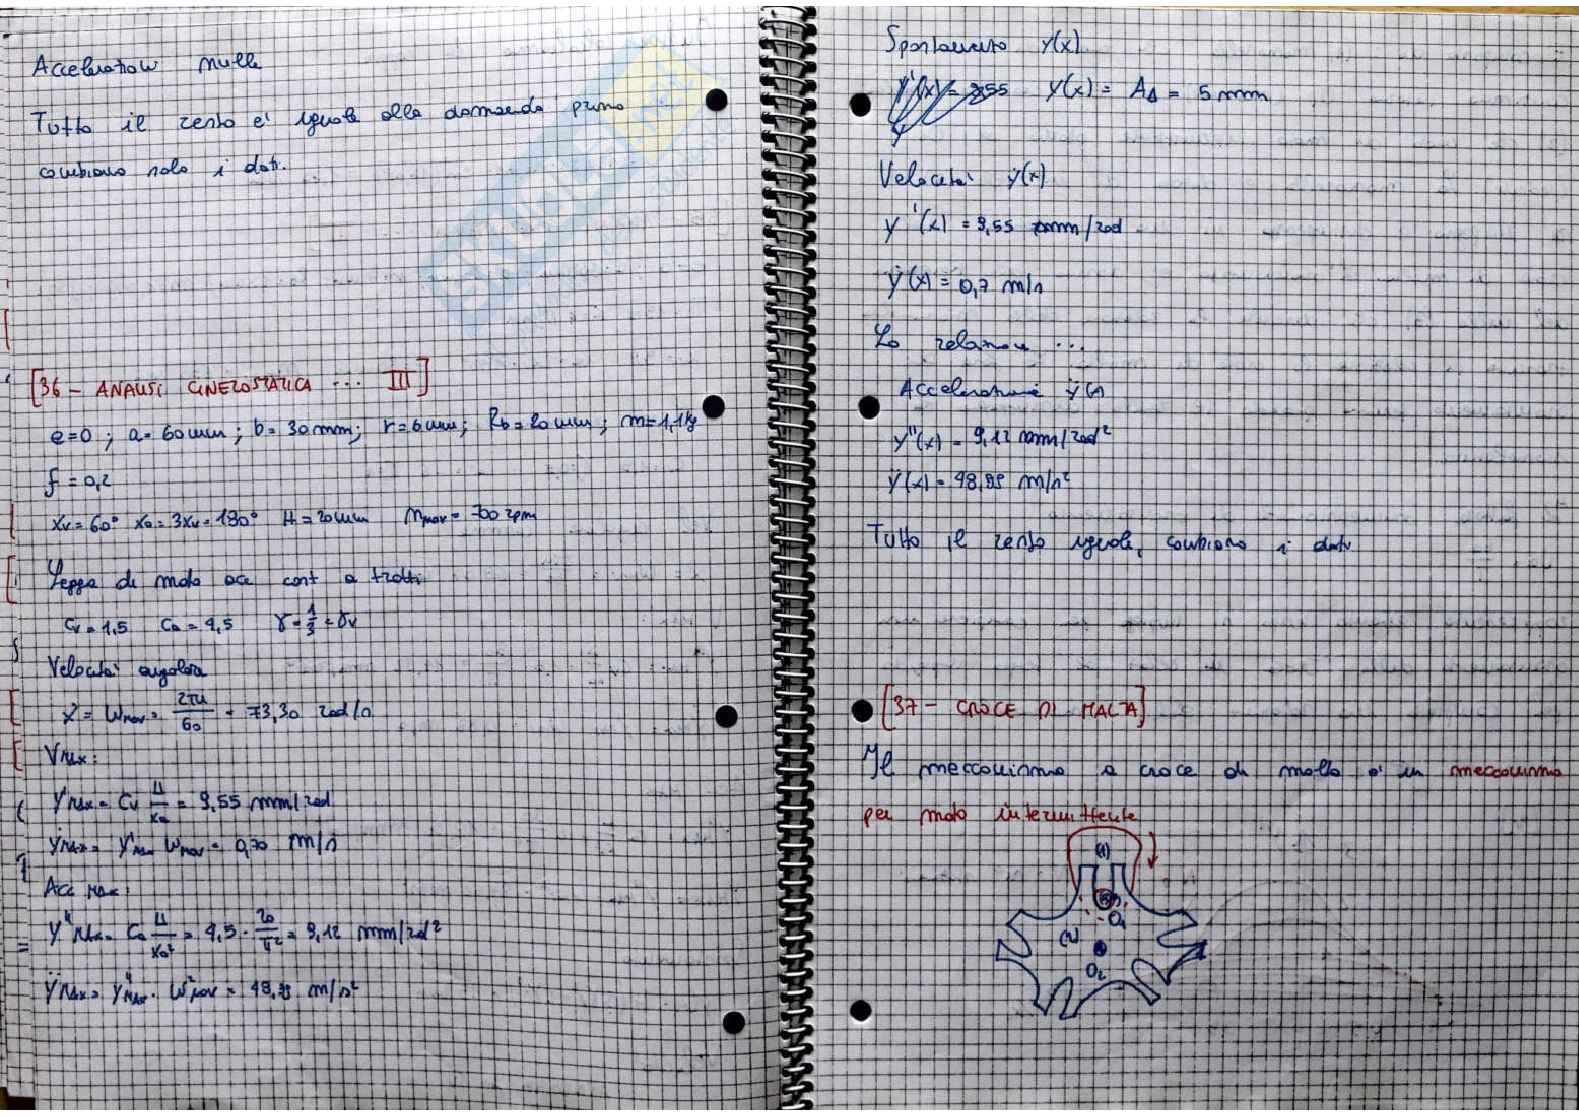 Accelerazione nulla
Tutto il resto e' uguale alla domanda prima
cambiano solo i dati.
[36 - ANALISI CINETOSTATICA ... III]
e=0 ; a= 60mm ; b= 30mm; r=6mm; Rb=20mm; m=1,1kg
f=0,2
Xv=60° Xa=3Xv=180° H=20mm nmov= 700 rpm
Legge di moto acc cost a tratti
Cv=1,5 Ca=4,5 γ=1/3=γv
Velocità angolare
ẋ= ωmov= 2πn/60 = 73,30 rad/s
VMAX:
y'MAX= Cv H/xa = 9,55 mm/rad
ẏMAX= y'MAX ωmov= 0,70 m/s
Acc MAX:
y"MAX= Ca H/xa² = 4,5 · 20/π² = 9,12 mm/rad²
ÿMAX= y"MAX · ω²mov = 48,98 m/s²
Spostamento y(x)
y(x)= AΔ = 5mm
Velocità ẏ(x)
y'(x) = 9,55 mm/rad
ẏ(x)= 0,7 m/s
La relazione ...
Accelerazione ÿ(x)
y"(x) = 9,12 mm/rad²
ÿ(x)= 48,98 m/s²
Tutto il resto uguale, cambiano i dati
[37 - CROCE DI MALTA]
Il meccanismo a croce di malta e' un meccanismo
per moto intermittente
(1)
O1
(2)
O2
SKUOLA
.net